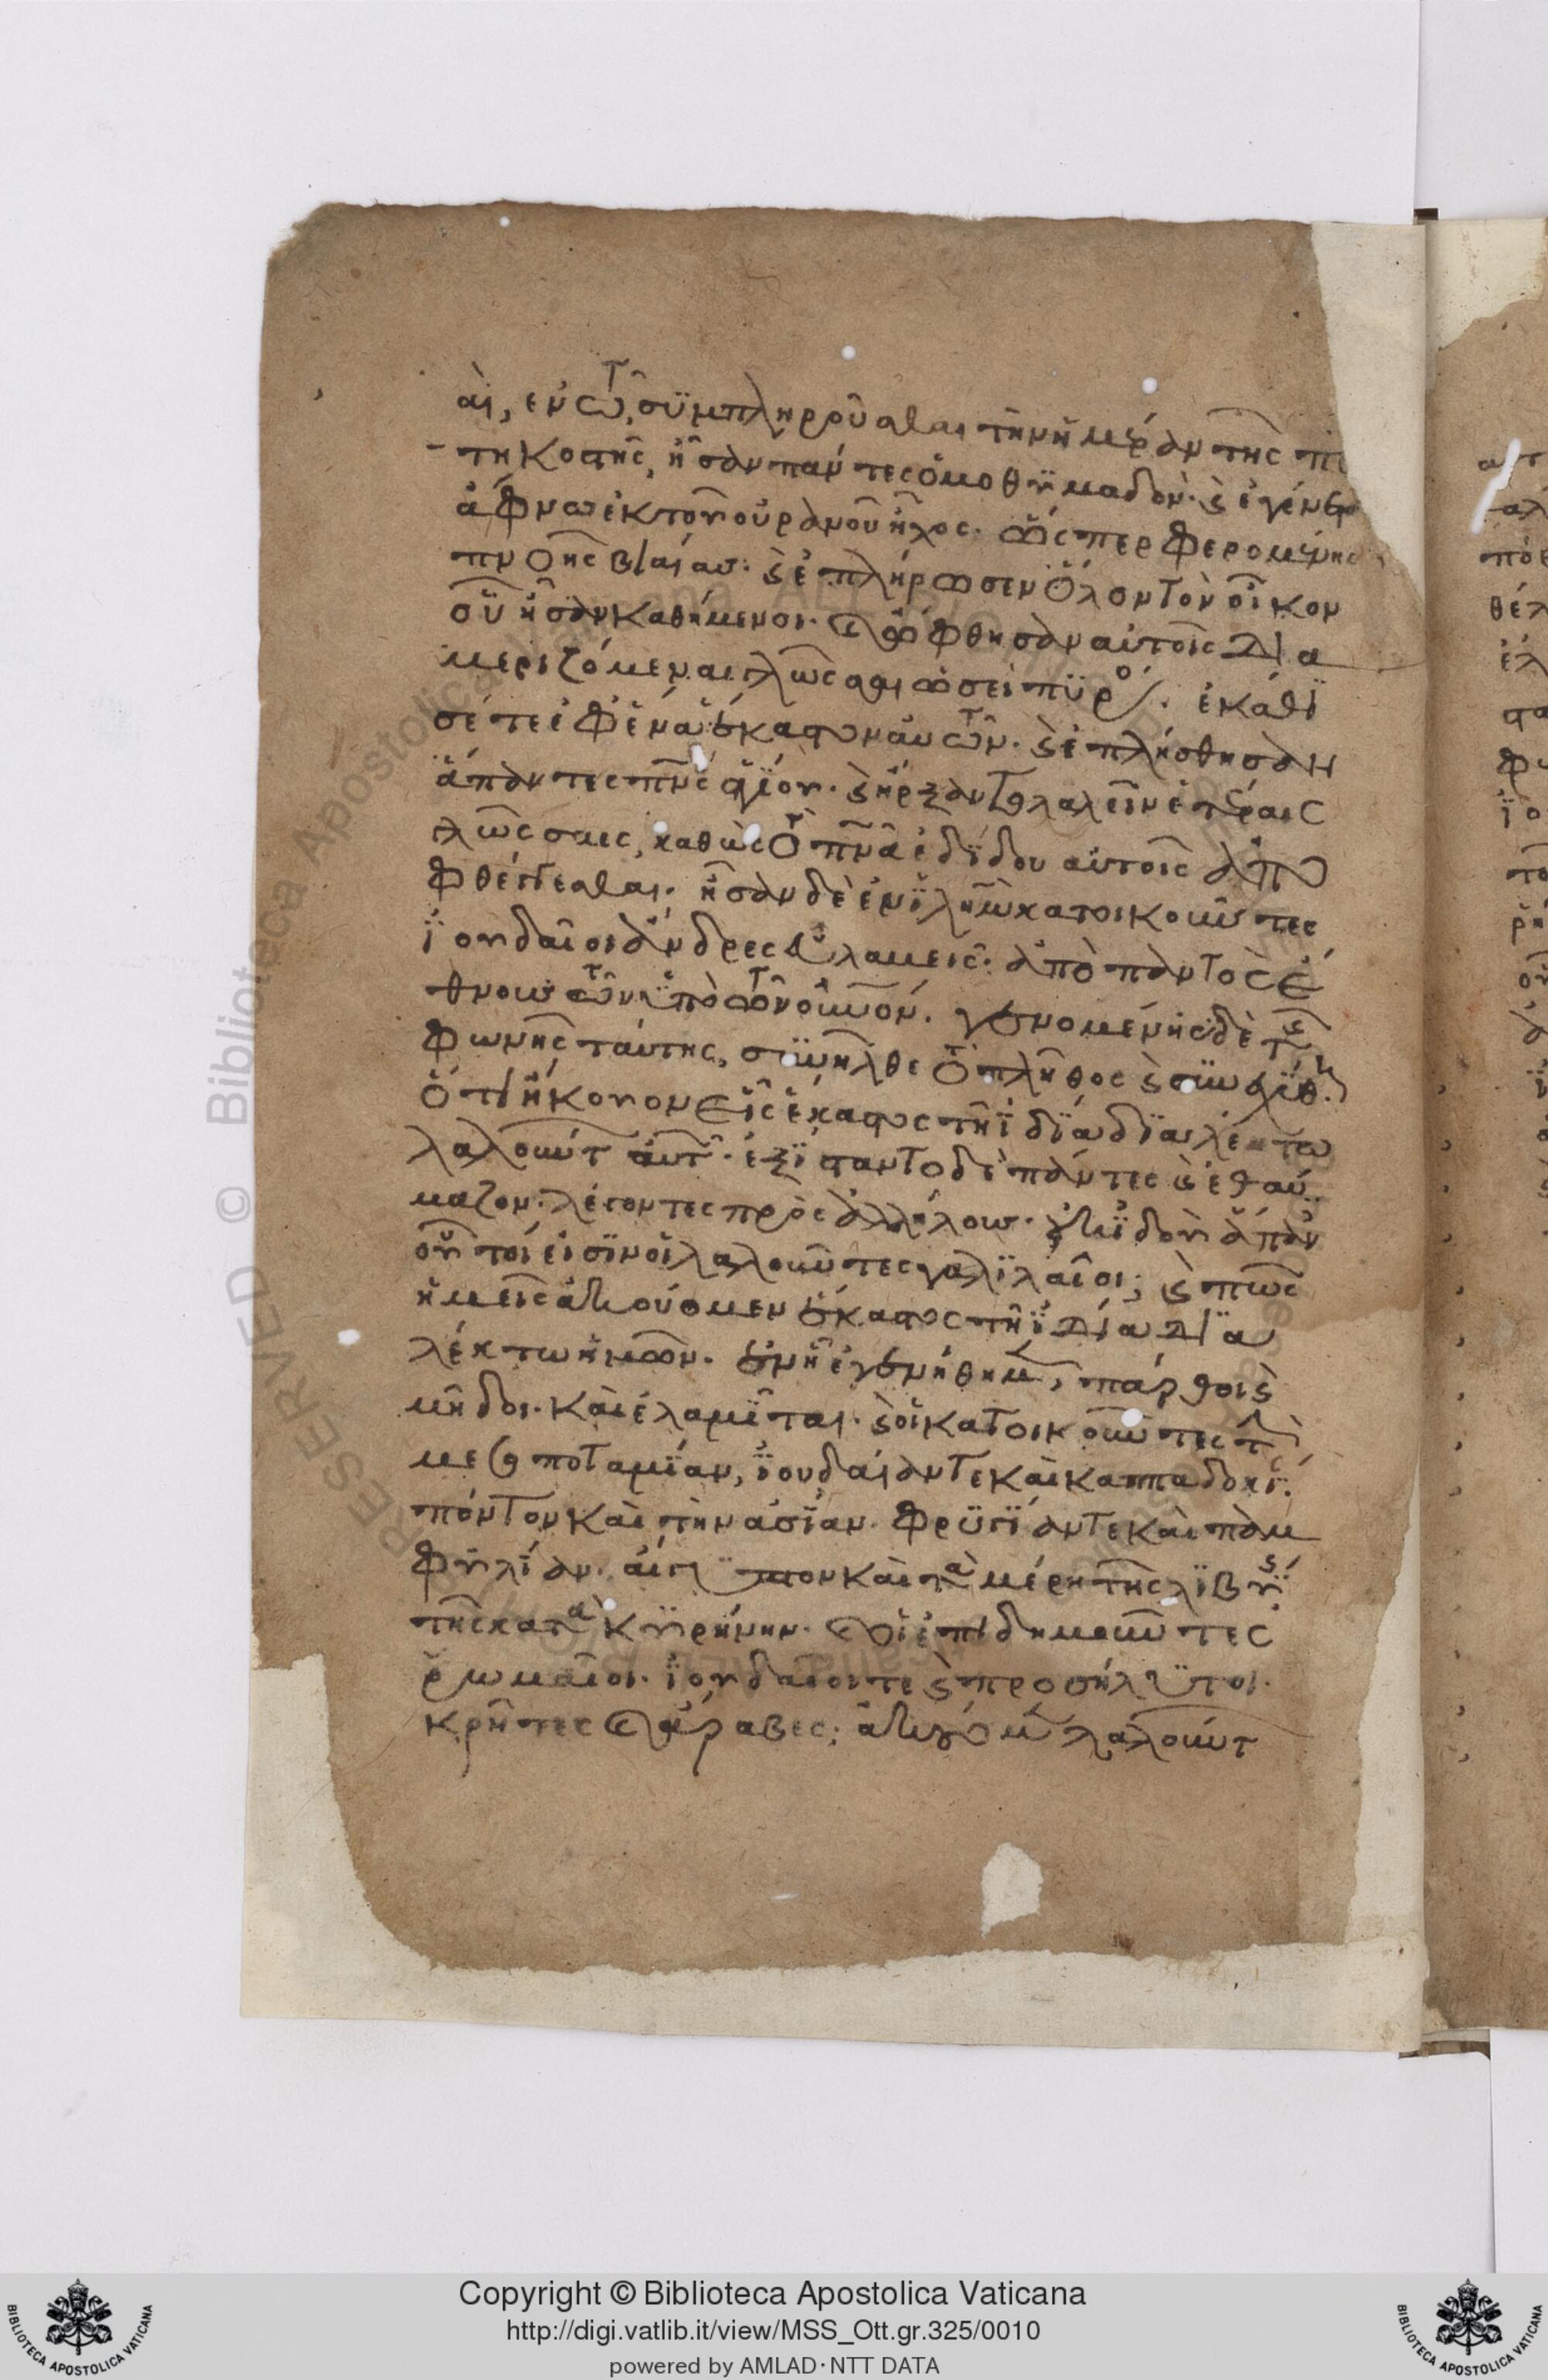 αι, εν τῶ συμπληροῦσθαι τὴν ἡμέραν τῆς πε
τηκοστῆς, ἦσαν πάντες ὁμοθυμαδόν. ϗ ἐγένετο
ἄφνω ἐκ τοῦ οὐρανοῦ ἦχος. ὥσπερ φερομένης
πνοῆς βιαίας. ϗ ἐπλήρωσεν ὅλον τὸν οἶκον
οὗ ἦσαν καθήμενοι. ϗ ὤφθησαν αὐτοῖς δια
μεριζόμεναι γλῶσσαι ὡσεὶ πυρὸς. ἐκάθι
σέ τε ἐφ' ἕνα ἕκαστον αὐτῶν. ϗ ἐπλήσθησαν
ἅπαντες πν̅ς ἁγίου. ϗ ἤρξαντο λαλεῖν ἑτέραις
γλώσσαις, καθὼς τὸ πν̅α ἐδίδου αὐτοῖς ἀπο
φθέγγεσθαι. ἦσαν δὲ ἐν ϊλη̅μ κατοικοῦντες
ϊουδαῖοι ἄνδρες εὐλαβεῖς. ἀπὸ παντὸς ἔ
θνους τῶν ὑπὸ τὸν οὐ̅νόν. γενομένης δὲ τῆς
φωνῆς ταύτης, συνῆλθε τὸ πλῆθος ϗ συνεχύθη.
ὅτι ἤκουον εἷς ἕκαστος τῆ ϊδία διαλέκτω
λαλούντ αὐτ. ἐξίσταντο δὲ πάντες ϗ ἐθαύ
μαζον. λέγοντες πρὸς ἀλλήλους. οὐκ ϊδοὺ ἅπαν
οὗτοί εἰσιν οἱ λαλοῦντες γαλιλαῖοι; ϗ πῶς
ἡμεῖς ἀκούομεν ἕκαστος τῆ ϊδία δια
λέκτω ἡμῶν. ἐν ἧ ἐγεννήθημ, πάρθοι ϗ
μῆδοι. καὶ ἐλαμῖται. ϗ οἱ κατοικοῦντες τὴν
μεσοποταμίαν, ϊουδαίαν τε καὶ καππαδοκί.
πόντον καὶ τὴν ἀσίαν. φρυγίαν τε καὶ παμ
φυλίαν. αἴγυπτον καὶ τὰ μέρη τῆς λιβύης
τῆς κατὰ κυρήνην. ϗ οἱ ἐπιδημοῦντες
ῥωμαῖοι. ϊουδαῖοι τε ϗ προσήλυτοι.
κρῆτες ϗ ἄραβες; ἀκούομ λαλούντ
Copyright © Biblioteca Apostolica Vaticana
http://digi.vatlib.it/view/MSS_Ott.gr.325/0010
powered by AMLAD·NTT DATA
BIBLIOTECA APOSTOLICA VATICANA
BIBLIOTECA APOSTOLICA VATICANA